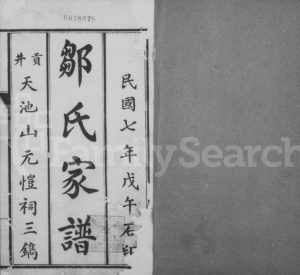 C028075
民國七年戊午石印
鄒氏家譜
貢井
天池山元愷祠三鐫
FamilySearch